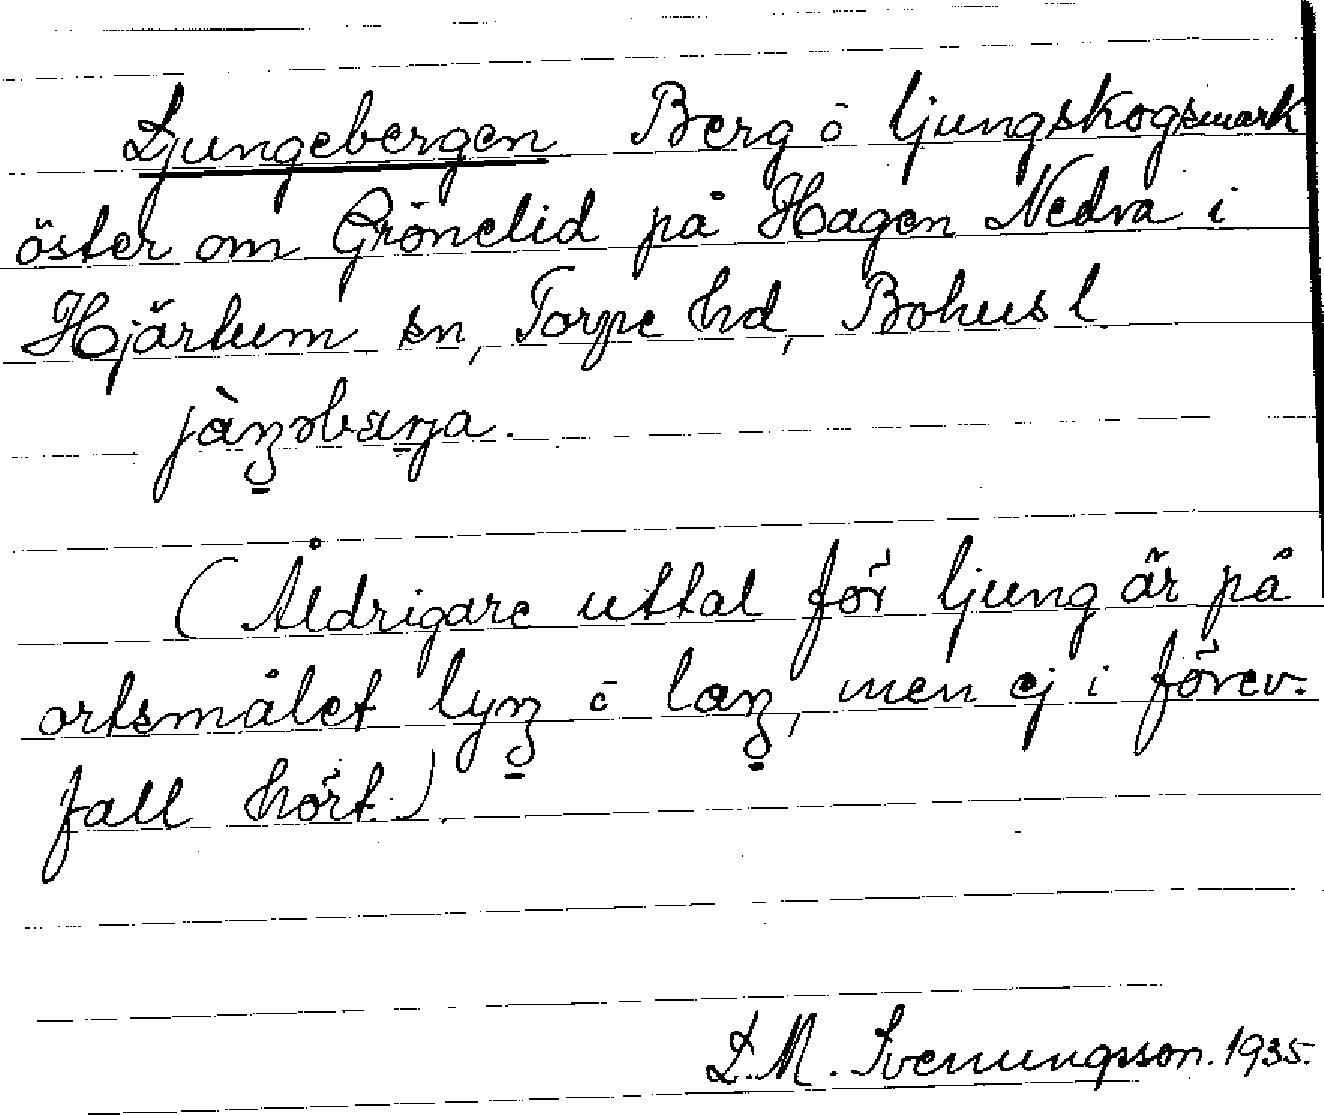 Ljungebergen Berg ō ljungskogsmark
öster om Grönelid på Hagen Nedra i
Hjärtum sn, Torpe hd, Bohusl.
jàŋəbærja.
(Åldrigare uttal för ljung är på
ortsmålet lyŋ ō laŋ, men ej i förev.
fall hört.)
L.M. Svenungsson. 1935.